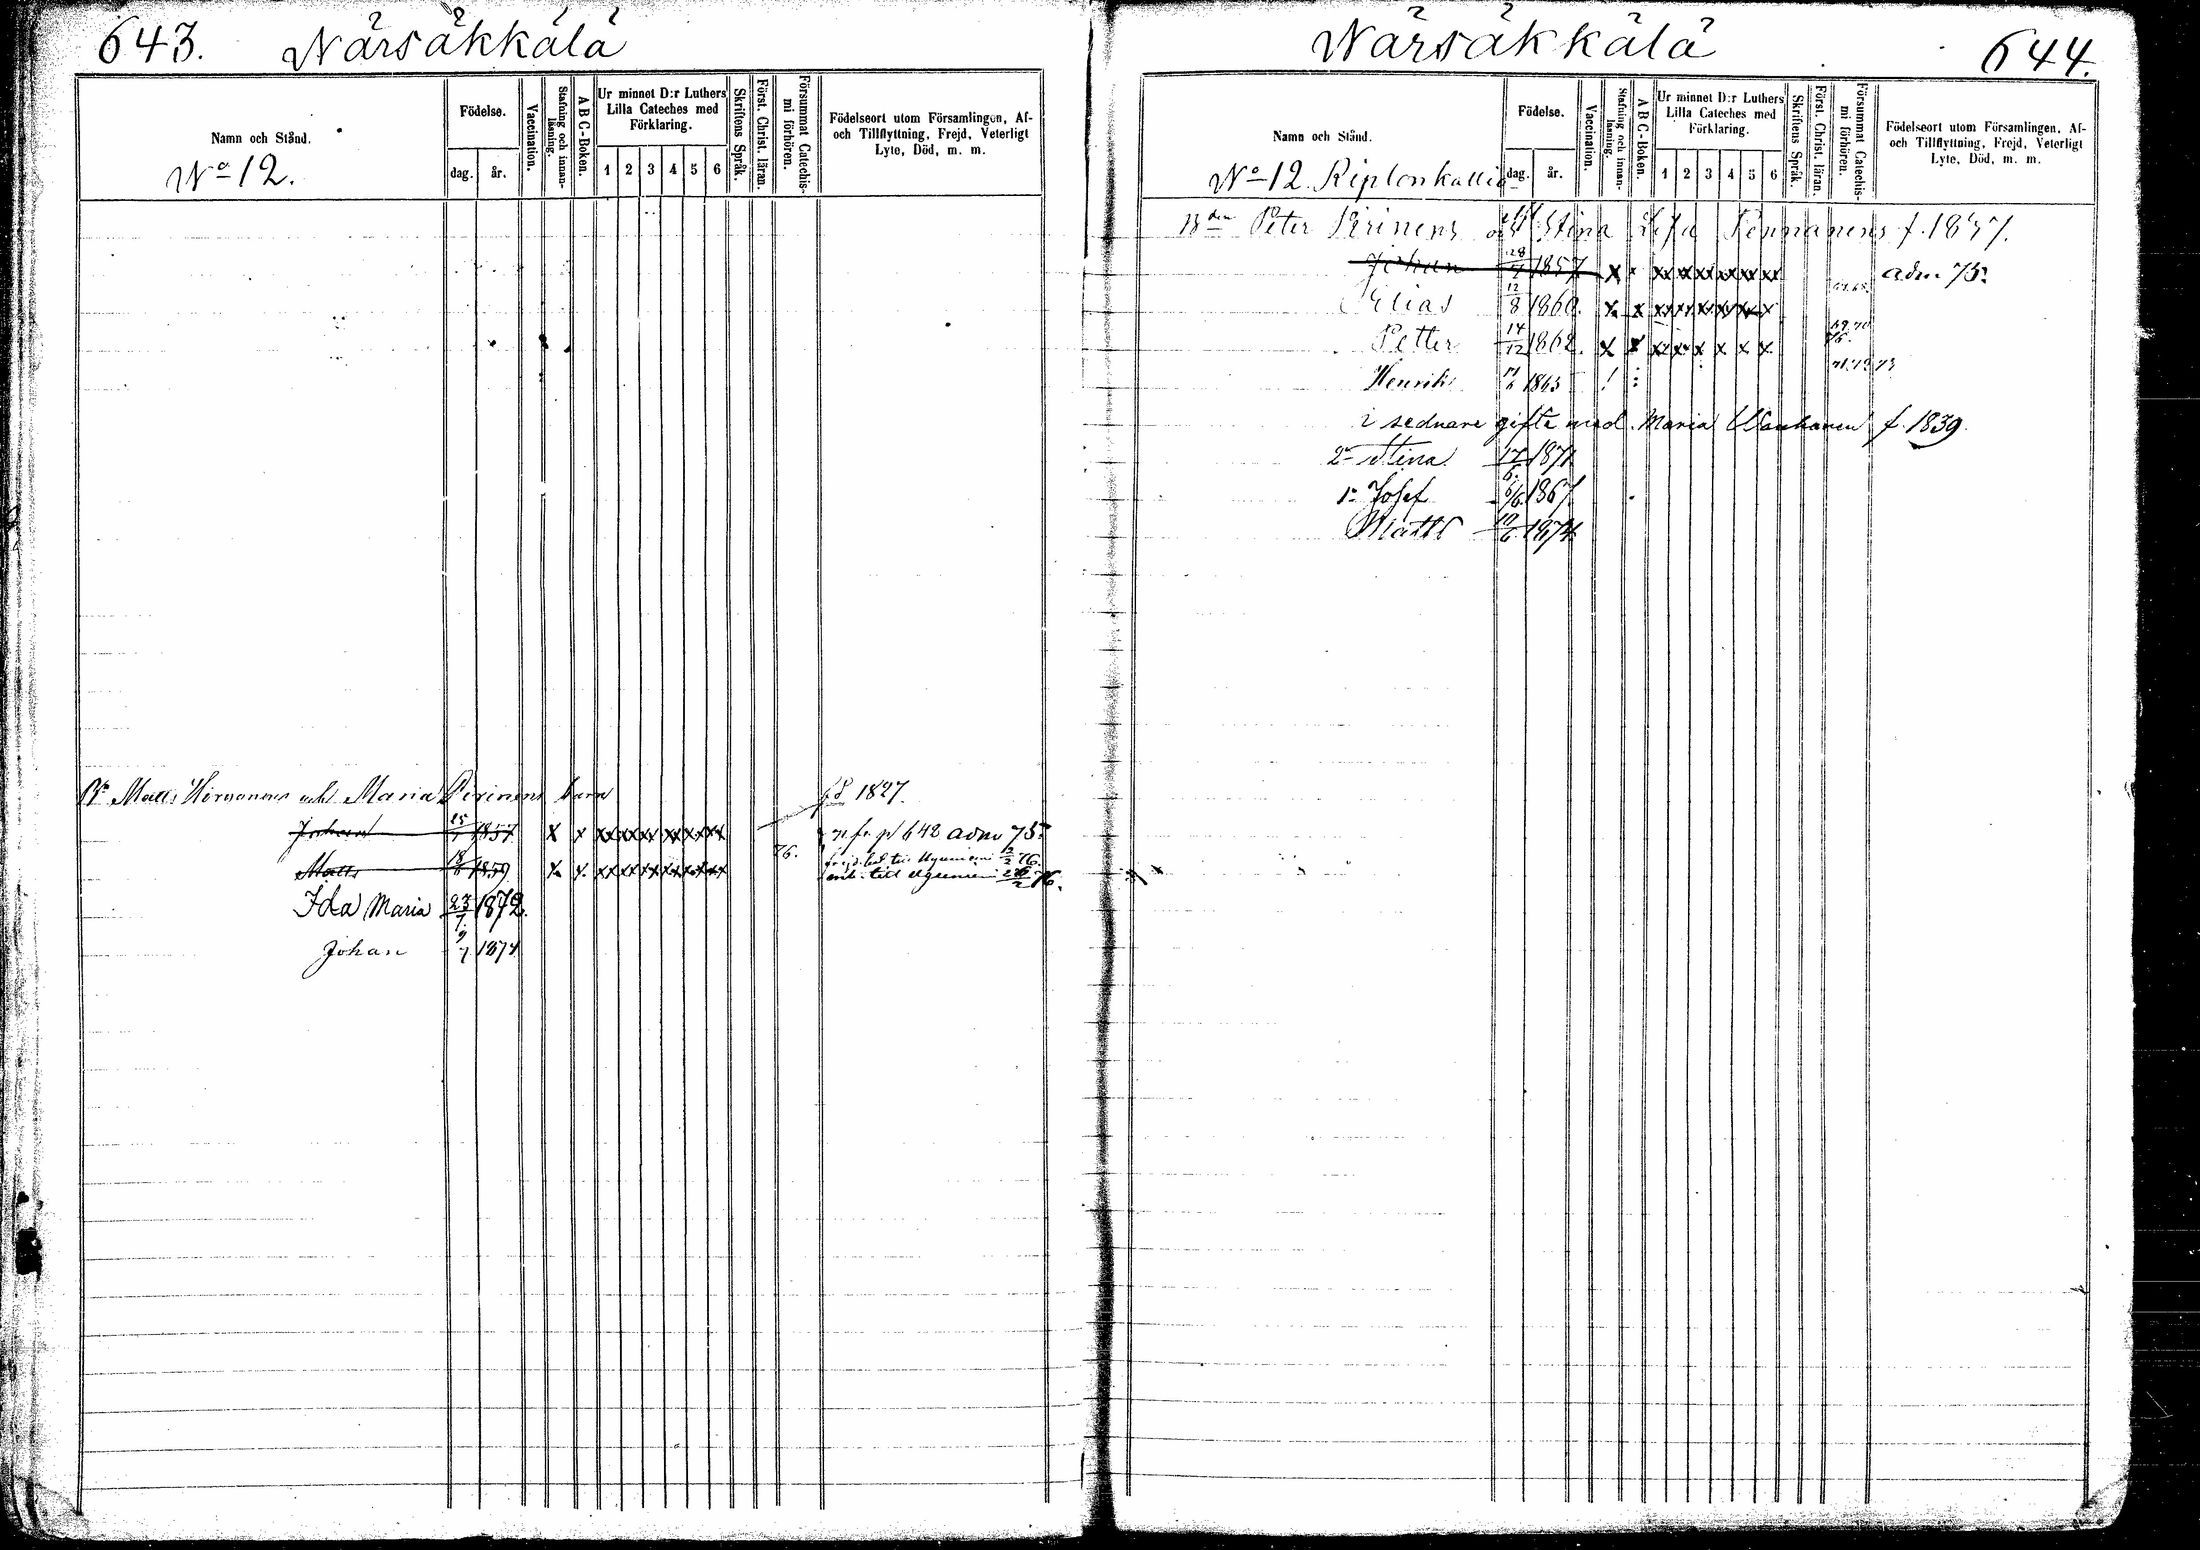 643. Närsäkkälä
Namn och Stånd.
No 12.
Födelse.
dag. år.
Vaccination.
Stafning och innan-läsning.
A B C-Boken.
Ur minnet D:r Luthers
Lilla Cateches med
Förklaring.
1 2 3 4 5 6
Skriftens Språk.
Först. Christ. läran.
Försummat Catechis-mi förhören.
Födelseort utom Församlingen, Af-
och Tillflyttning, Frejd, Veterligt
Lyte, Död, m. m.
Matts Hirvonens och Maria Pirinens barn 1827.
Johan 25/7 1857 X x xx xx xx xx xx xx p 642 adm 75.
Matts 18/8 1859 X x xx xx xx xx xx xx 76. 12/2 76.
till 26/2 76.
Ida Maria 23/7. 1872.
Johan 9/7 1874
Närsäkkälä 644.
Namn och Stånd.
No 12. Riplonkallio
Födelse.
dag. år.
Vaccination.
Stafning och innan-läsning.
A B C-Boken.
Ur minnet D:r Luthers
Lilla Cateches med
Förklaring.
1 2 3 4 5 6
Skriftens Språk.
Först. Christ. läran.
Försummat Catechis-mi förhören.
Födelseort utom Församlingen, Af-
och Tillflyttning, Frejd, Veterligt
Lyte, Död, m. m.
Peter Pirinens och Stina Lisa Pennanens f. 1837.
Johan 28/7 1857 X xx xx xx xx xx xx adm 75.
Elias 12/8 1860. X x xx xx xx xx xx x
Petter 14/12 1862. X x xx xx x x x x 69.70 76.
Henrik 1865 71.72 73
i sednare gifte med Maria Wanhanen f. 1839.
2 Stina 17/6. 1871
1 Josef 6/6. 1867.
Matts 10/6 1874